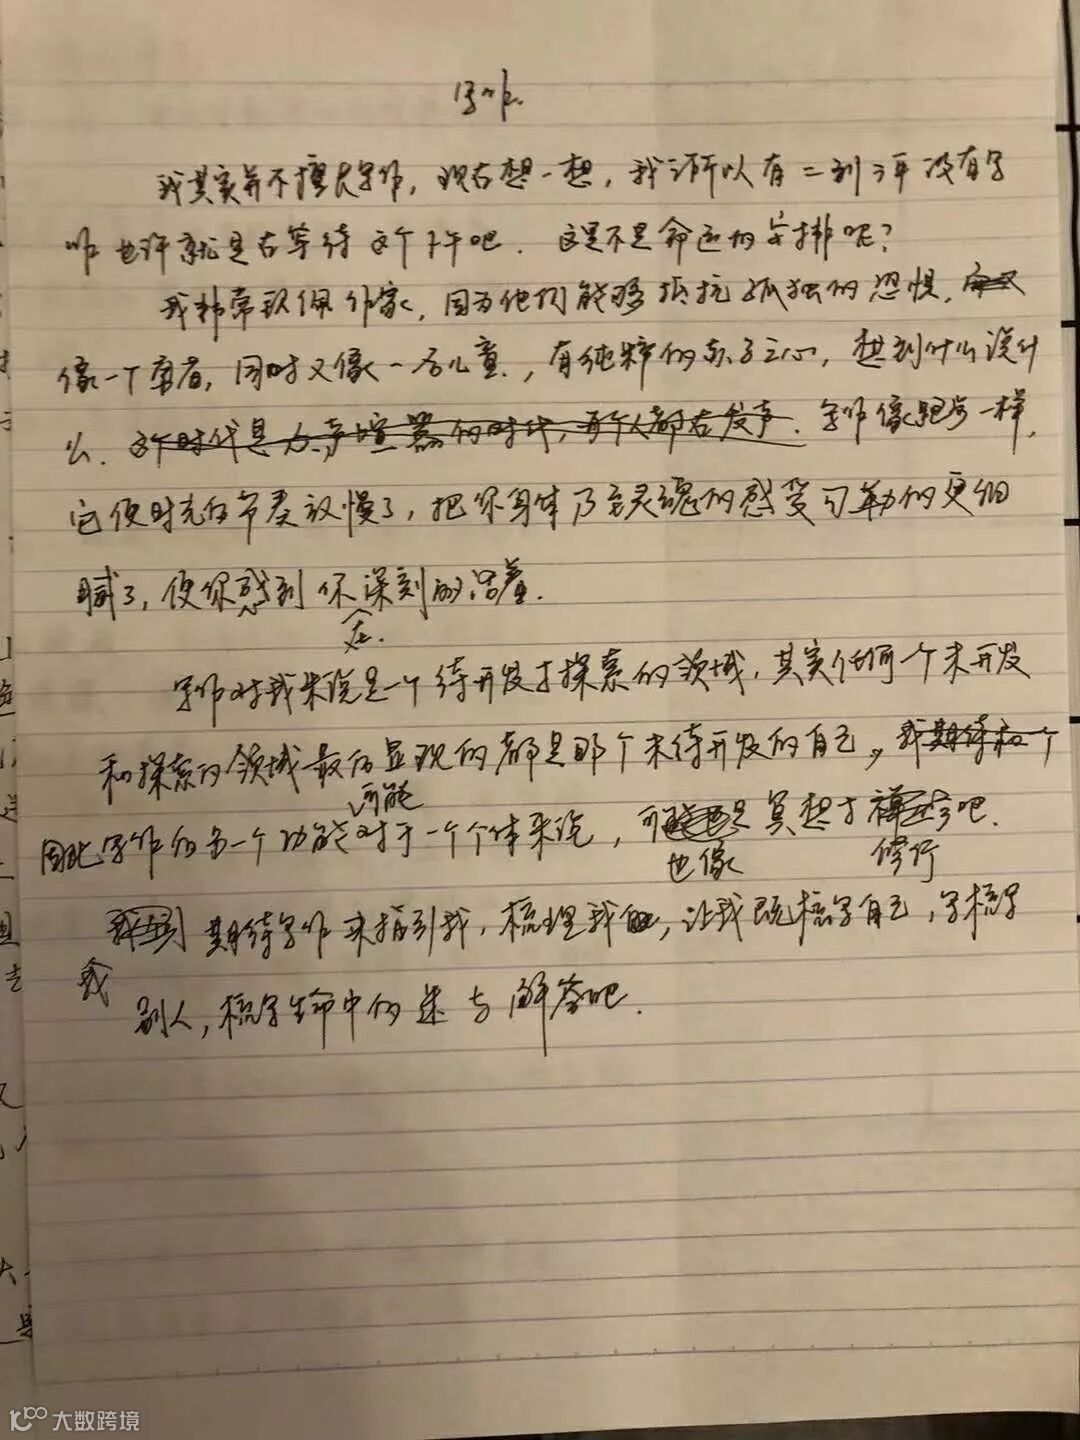 写作
我其实并不擅长写作，现在想一想，我之所以有二到三年没有写
作也许就是在等待这个下午吧．这是不是命运的安排呢？
我非常钦佩作家，因为他们能够抵抗孤独的恐惧，
像一个勇者，同时又像一名儿童，有纯粹的赤子之心，想到什么说什
么．这个时代是众声喧嚣的时代，每个人都在发声．写作像跑步一样，
它使时光的节奏放慢了，把你身体乃至灵魂的感受勾勒的更细
腻了，使你感到你在深刻的活着．
写作对我来说是一个待开发于探索的领域，其实任何一个未开发
和探索的领域最后可能显现的都是那个未待开发的自己，我期待和一个
因此写作的另一个功能对于一个个体来说，也像是冥想于修行吧．
我期待写作来指引我，梳理我，让我既梳写自己，写梳写
别人，梳写生命中的迷与解答吧．
大数跨境